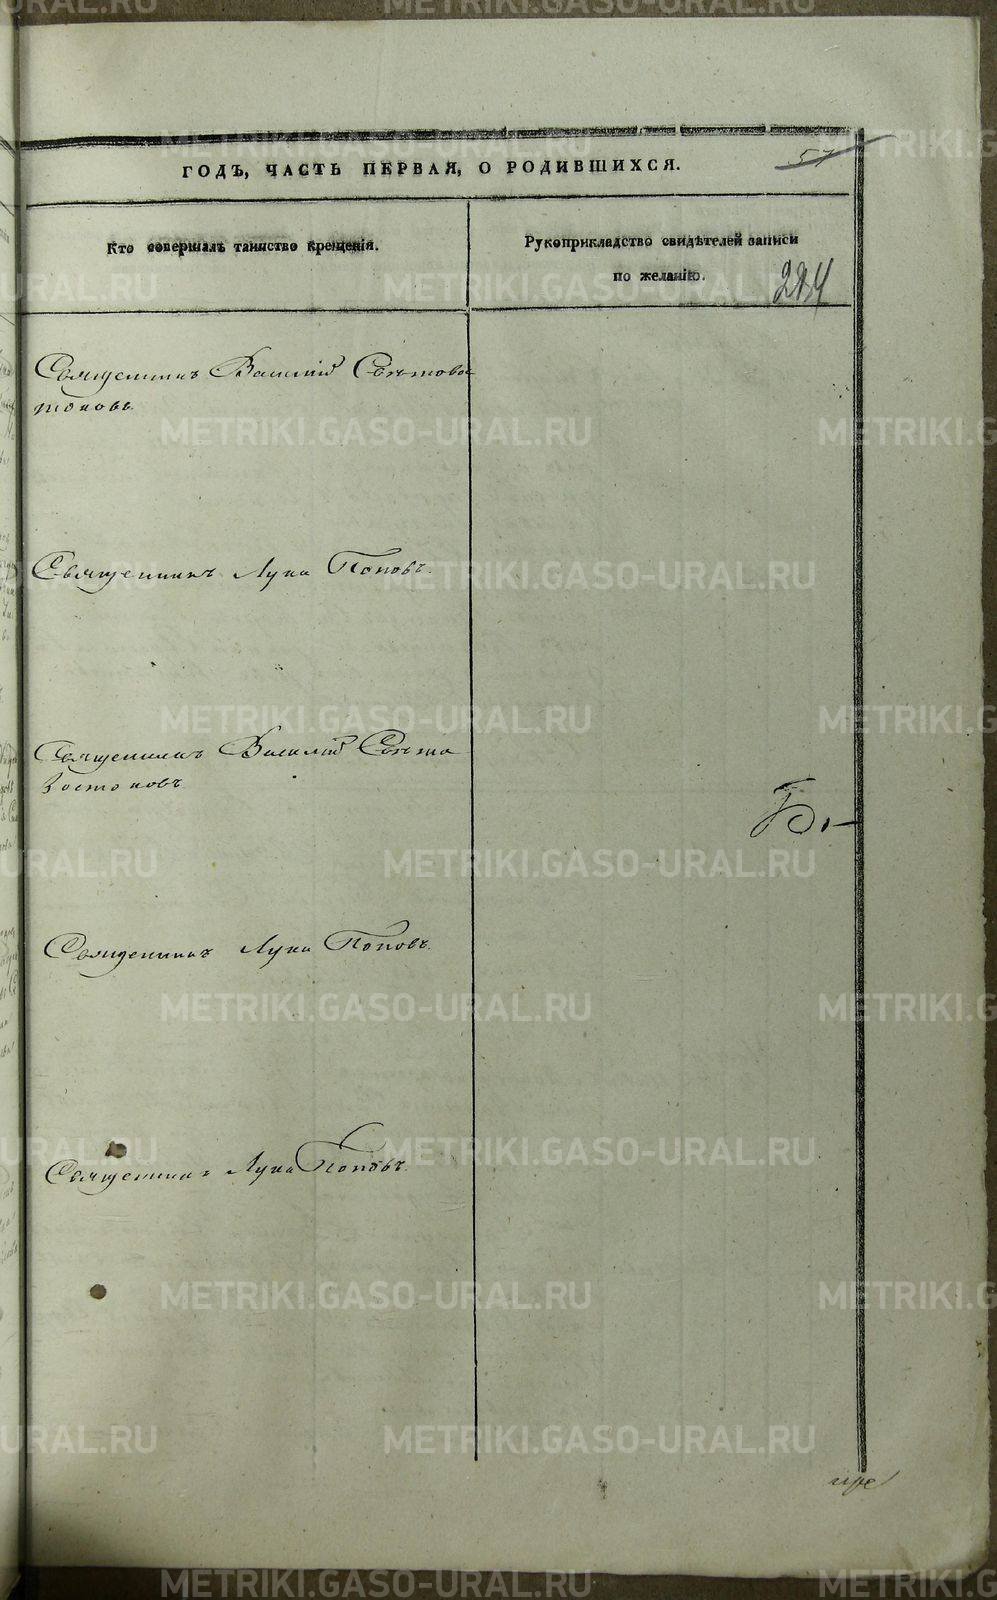 57
ГОДЪ, ЧАСТЬ ПЕРВАЯ, О РОДИВШИХСЯ.
Кто совершалъ таинство крещенія.
Рукоприкладство свидѣтелей записи
по желанію.
Священникъ Василій
Священникъ Лука Поповъ.
Священникъ Василій
Священникъ Лука Поповъ.
Священникъ Лука Поповъ.
METRIKI.GASO-URAL.RU